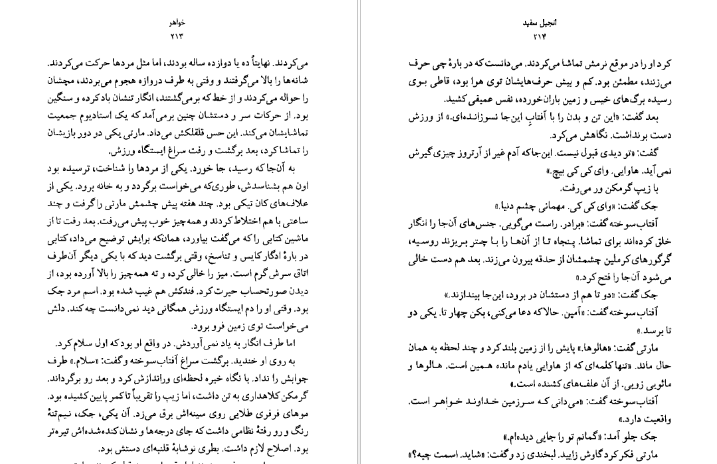 خواهر
۲۱۳
می‌کردند. نهایتاً ده یا دوازده ساله بودند، اما مثل مردها حرکت می‌کردند.
شانه‌ها را بالا می‌گرفتند و وقتی به طرف دروازه هجوم می‌بردند، مچشان
را حواله می‌کردند و از خط که برمی‌گشتند، انگار تنشان باد کرده و سنگین
بود. از حرکات سر و دستشان چنین برمی‌آمد که یک استادیوم جمعیت
تماشایشان می‌کند. این حس قلقلکش می‌داد. مارتی یکی دو دور بازیشان
را تماشا کرد، بعد برگشت و رفت سراغ ایستگاه ورزش.
به آن‌جا که رسید، جا خورد. یکی از مردها را شناخت، ترسیده بود
اون هم بشناسدش، طوری‌که می‌خواست برگردد و به خانه برود. یکی از
علاف‌های کان تیکی بود. چند هفته پیش چشمش مارتی را گرفت و چند
ساعتی با هم اختلاط کردند و همه‌چیز خوب پیش می‌رفت. بعد رفت تا از
ماشین کتابی را که می‌گفت بیاورد، همان‌که برایش توضیح می‌داد، کتابی
در بارهٔ ادگار کایس و تناسخ، وقتی برگشت دید که با یکی دیگر آن‌طرف
اتاق سرش گرم است. میز را خالی کرده و ته همه‌چیز را بالا آورده بود، از
دیدن صورتحساب حیرت کرد. فندکش هم غیب شده بود. اسم مرد جک
بود. وقتی او را دم ایستگاه ورزش همگانی دید نمی‌دانست چه کند. دلش
می‌خواست توی زمین فرو برود.
اما طرف انگار به یاد نمی‌آوردش. در واقع او بود که اول سلام کرد.
به روی او خندید. برگشت سراغ آفتاب‌سوخته و گفت: «سلام.» طرف
جوابش را نداد. با نگاه خیره لحظه‌ای وراندازش کرد و بعد رو برگرداند.
گرمکن کلاهداری به تن داشت، اما زیپ را تقریباً تا کمر پایین کشیده بود.
موهای فرفری طلایی روی سینه‌اش برق می‌زد. آن یکی، جک، نیم‌تنهٔ
رنگ و رو رفتهٔ نظامی داشت که جای درجه‌ها و نشان کنده‌شده‌اش تیره‌تر
بود. اصلاح لازم داشت. بطری نوشابهٔ قلنبه‌ای دستش بود.
انجیل سفید
۲۱۴
کرد او را در موقع نرمش تماشا می‌کردند. می‌دانست که در بارهٔ چی حرف
می‌زنند، مطمئن بود. کم و بیش حرف‌هایشان توی هوا بود، قاطی بوی
رسیده برگ‌های خیس و زمین باران‌خورده، نفس عمیقی کشید.
بعد گفت: «این تن و بدن را با آفتاب این‌جا نسوزانده‌ای.» از ورزش
دست برنداشت. نگاهش می‌کرد.
گفت: «تو دیدی قبول نیست. این‌جا که آدم غیر از آرتروز چیزی گیرش
نمی‌آید. هاوایی. وای کی کی بیچ.»
با زیپ گرمکن ور می‌رفت.
جک گفت: «وای کی کی. مهمانی چشم دنیا.»
آفتاب‌سوخته گفت: «برادر. راست می‌گویی. جنس‌های آن‌جا را انگار
خلق کرده‌اند برای تماشا. پنجاه تا از آن‌ها را با چتر بریزند روسیه،
گرگورهای کرملین چشمشان از حدقه بیرون می‌زند. بعد هم دست خالی
می‌شود آن‌جا را فتح کرد.»
جک گفت: «دو تا هم از دستشان در برود، این‌جا بیندازند.»
آفتاب‌سوخته گفت: «آمین. حالا که دعا می‌کنی، بکن چهار تا. یکی دو
تا برسد.»
مارتی گفت: «هالوها.» پایش را از زمین بلند کرد و چند لحظه به همان
حال ماند. «تنها کلمه‌ای که از هاوایی یادم مانده همین است. هالوها و
مائویی زویی. از آن علف‌های کشنده است.»
آفتاب‌سوخته گفت: «می‌دانی که سرزمین خداوند خواهر است.
واقعیت دارد.»
جک جلو آمد: «گمانم تو را جایی دیده‌ام.»
مارتی فکر کرد گاوش زایید. لبخندی زد و گفت: «شاید. اسمت چیه؟»